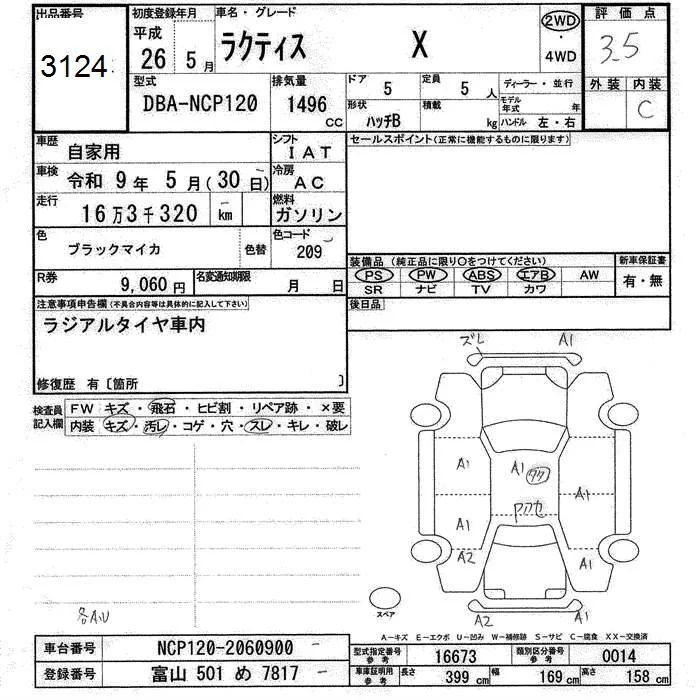 出品番号
3124
初度登録年月
平成
26 5月
車名・グレード
ラクティス X
2WD
・
4WD
評価点
3.5
外装 内装
C
型式
DBA-NCP120
排気量
1496
CC
ドア
5
定員
5 人
形状
ハッチB
積載
kg
ディーラー・並行
モデル年式 年
ハンドル 左・右
車歴
自家用
シフト
IAT
車検
令和 9年 5月(30日)
冷房
AC
走行
16万3千320 km
燃料
ガソリン
色
ブラックマイカ
色替
色コード
209
R券
9,060円
名変通知期限
月 日
セールスポイント(正常に機能するものに限ります)
装備品 (純正品に限り〇をつけてください)
PS PW ABS エアB AW
SR ナビ TV カワ
新車保証書
有・無
後日品
注意事項申告欄(不具合内容等は具体的に記入して下さい)
ラジアルタイヤ車内
修復歴 有〔箇所 〕
検査員記入欄
FW キズ・飛石・ヒビ割・リペア跡・×要
内装 キズ・汚レ・コゲ・穴・スレ・キレ・破レ
ズレ A1
A1 A1 タク A1
アクセ
A1
A2 A1
A2 A1
スペア
各A,U
A－キズ E－エクボ U－凹み W－補修跡 S－サビ C－腐食 XX－交換済
車台番号
NCP120-2060900
登録番号
富山 501 め 7817
型式指定番号
参考
16673
類別区分番号
参考
0014
車庫証明用
参考
長さ 399 cm
幅 169 cm
高さ 158 cm